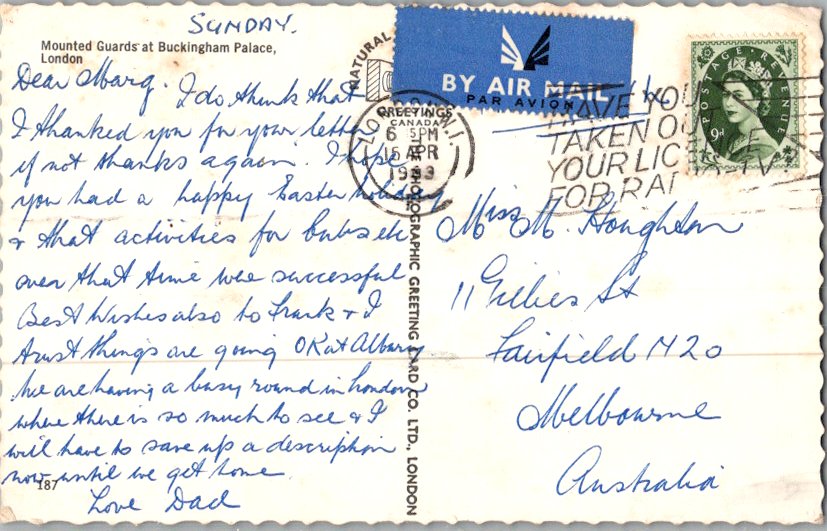 SUNDAY.
Mounted Guards at Buckingham Palace,
London
Dear Marg. I do think that
I thanked you for your letter
if not thanks again. I hope
you had a happy Easter holiday
& that activities for Cubs etc
over that time were successful
Best Wishes also to Frank & I
trust things are going OK at Albury
We are having a busy round in London
where there is so much to see & I
will have to save up a description
now until we get home.
Love Dad
187
NATURAL
PHOTOGRAPHIC GREETING CARD CO. LTD., LONDON
BY AIR MAIL
PAR AVION
LONDON W.1.
GREETINGS
CANADA
6 PM
15 APR
HAVE YOU
TAKEN OU
YOUR LIC
FOR RA
TV
POSTAGE REVENUE
9d
Miss M. Houghton
11 Gillies St
Fairfield N20
Melbourne
Australia